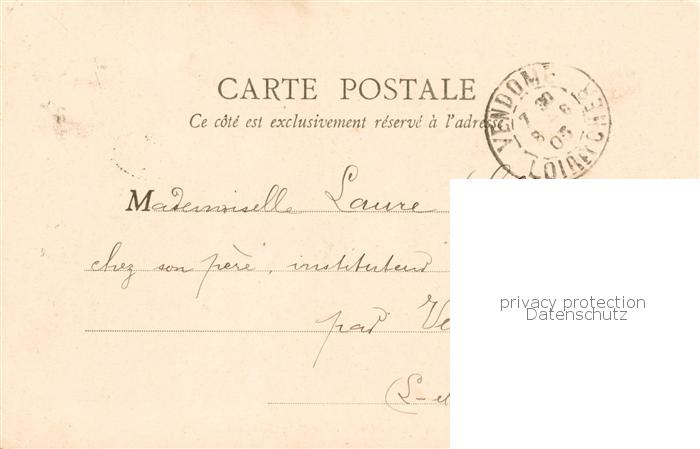 CARTE POSTALE
Ce côté est exclusivement réservé à l'adresse
VENDOME
7 30
8 6
05
LOIR-ET-CHER
Mademoiselle Laure
chez son père, instituteur
par Ve
(L-et
privacy protection
Datenschutz